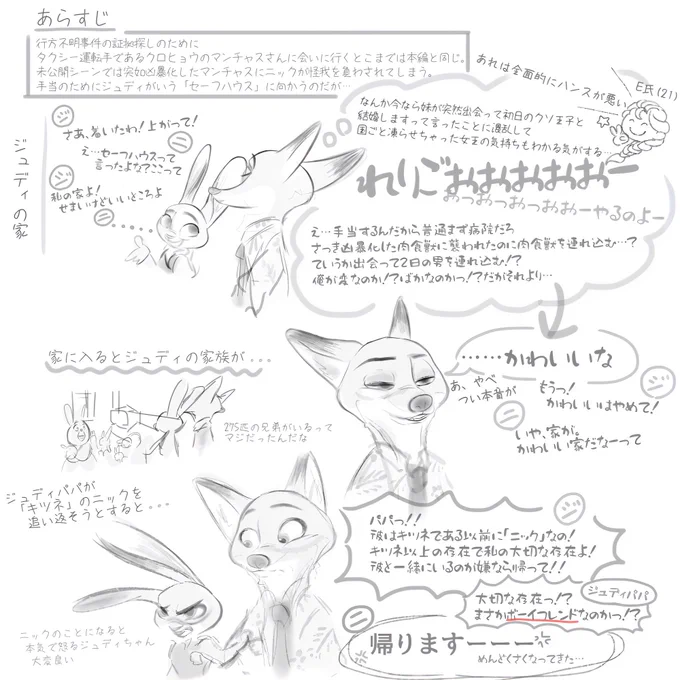 あらすじ
行方不明事件の証拠探しのために
タクシー運転手であるクロヒョウのマンチャスさんに会いに行くとこまでは本編と同じ。
未公開シーンでは突如凶暴化したマンチャスにニックが怪我を負わされてしまう。
手当のためにジュディがいう「セーフハウス」に向かうのだが…
あれは全面的にハンスが悪い
E氏(21)
ジュディの家
ジ
さあ、着いたわ!上がって!
え…セーフハウスって
言ったよな?ここって
ニ
ジ
私の家よ!
せまいけどいいところよ
ニ
・・・・・・
なんか今なら妹が突然出会って初日のクソ王子と
結婚しますって言ったことに混乱して
国ごと凍らせちゃった女王の気持ちもわかる気がする…
れりごおおおおおおおー
おっおっおっおっおおーやるのよー
え…手当するんだから普通まず病院だろ
さっき凶暴化した肉食獣に襲われたのに肉食獣を連れ込む…?
ていうか出会って2日の男を連れ込む!?
俺が変なのか!?ばかなのかっ!?だがそれより…
……かわいいな
あ、やべ
つい本音が
ニ
もうっ!
かわいいはやめて!
ジ
いや、家が。
かわいい家だなーって
家に入るとジュディの家族が...
275匹の兄弟がいるって
マジだったんだな
ジュディパパが
「キツネ」のニックを
追い返そうとすると...
ジ
パパっ!!
彼はキツネである以前に「ニック」なの!
キツネ以上の存在で私の大切な存在よ!
彼と一緒にいるのが嫌なら帰って!!
大切な存在っ!?
まさかボーイフレンドなのかっ!?
ジュディパパ
ニ
帰りますーーー
めんどくさくなってきた…
ニックのことになると
本気で怒るジュディちゃん
大変良い